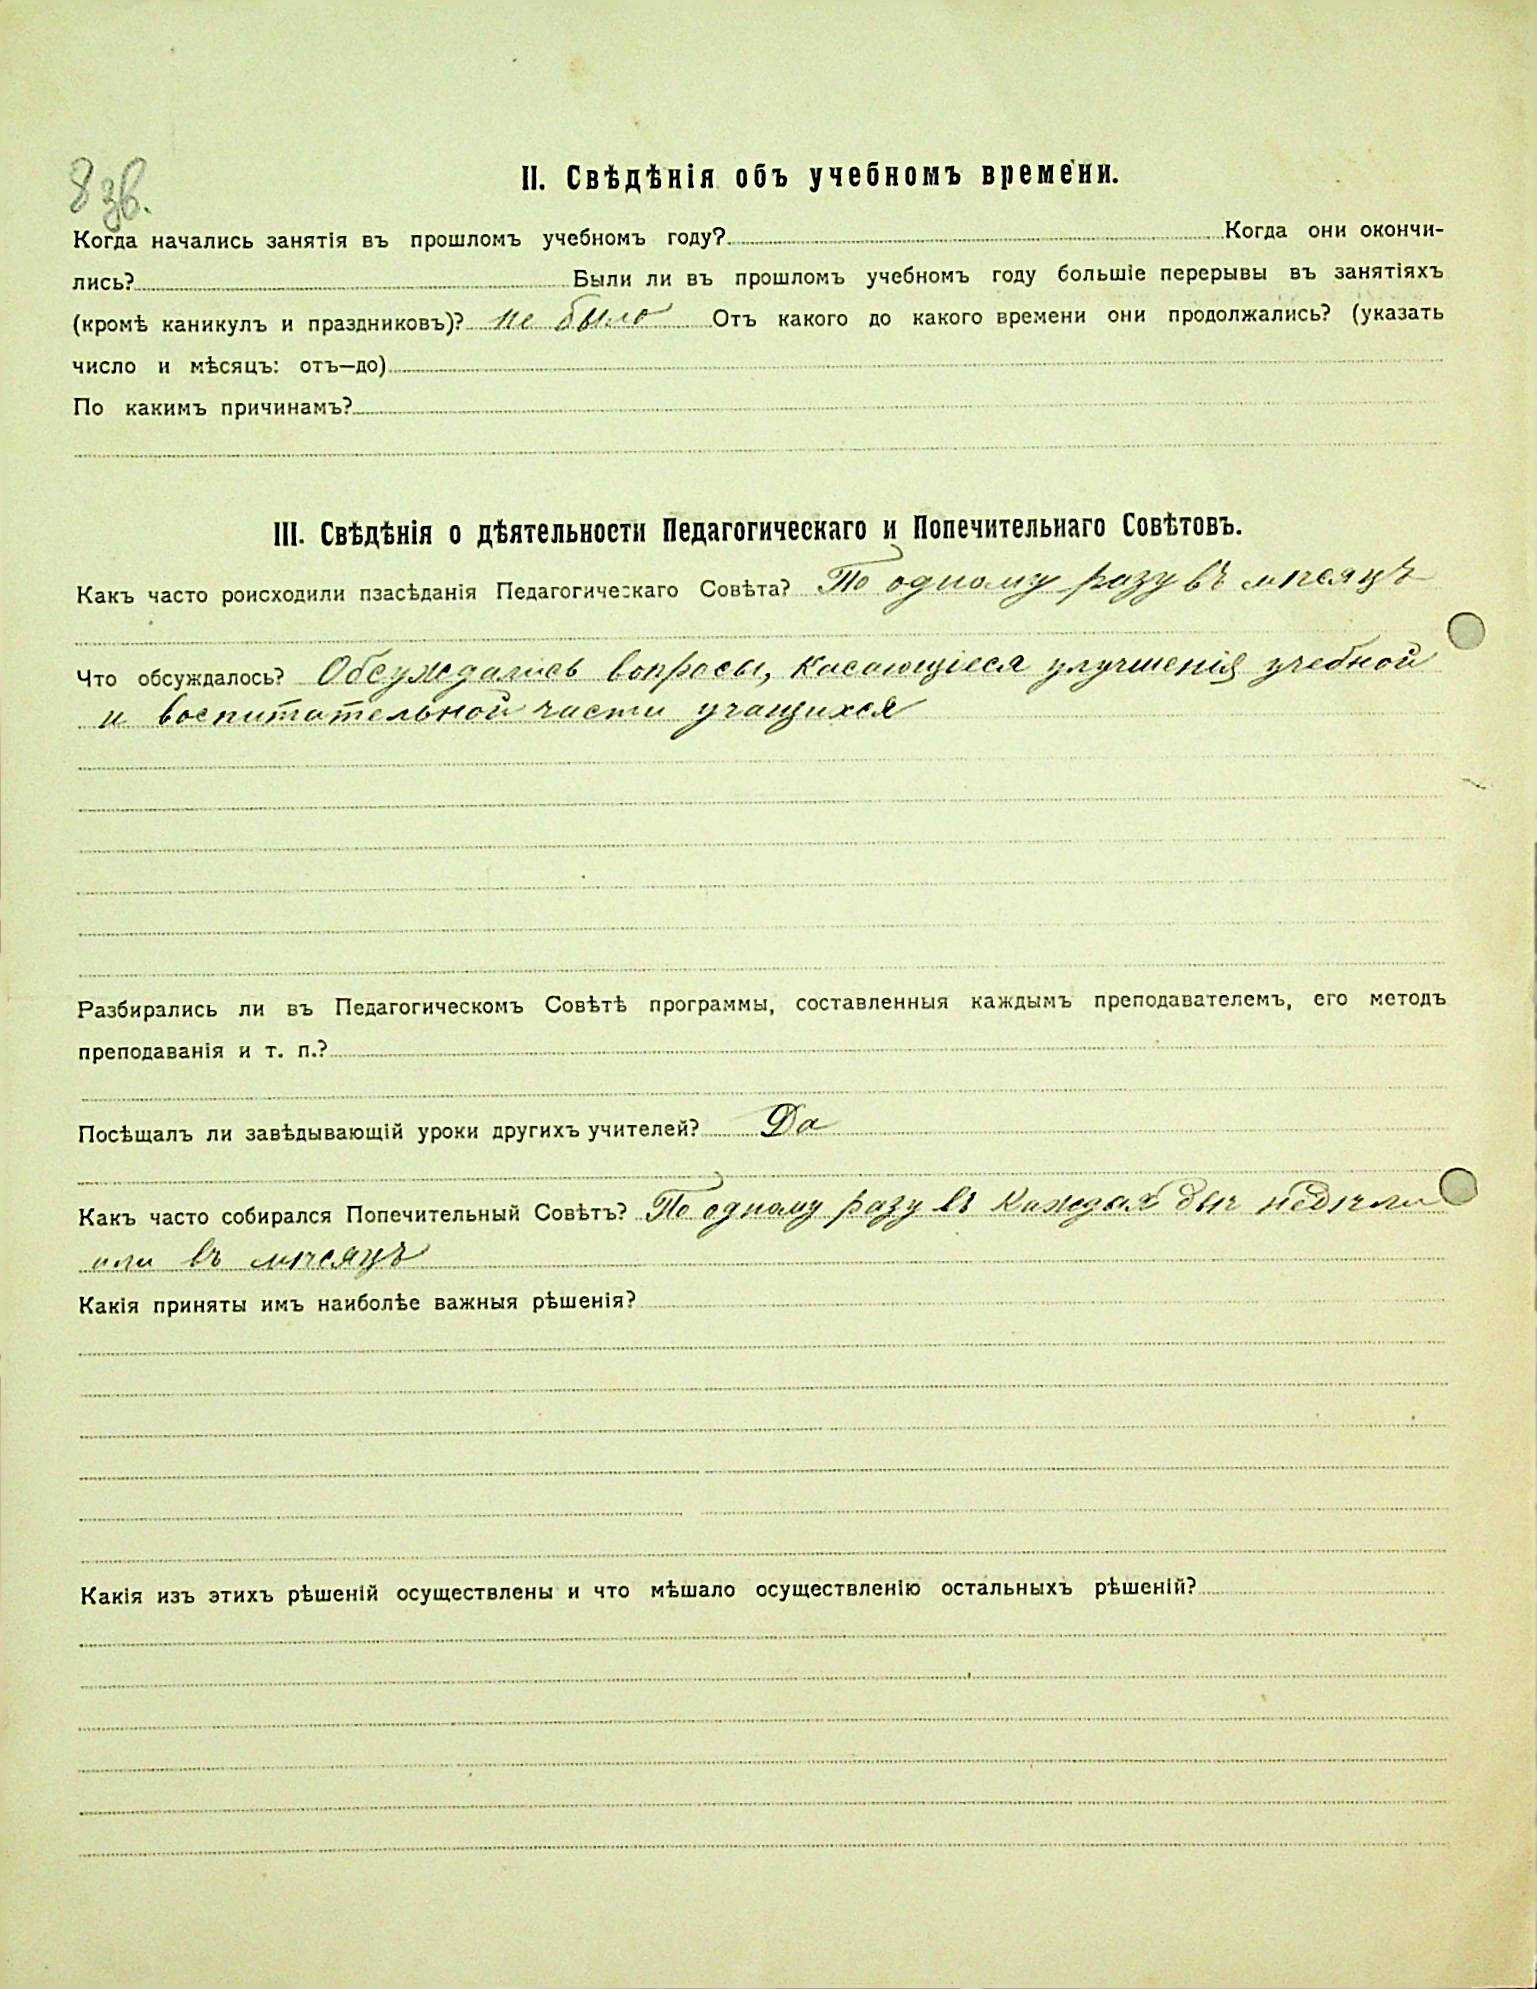 II. Свѣдѣнія объ учебномъ времени.
Когда начались занятія въ прошломъ учебномъ году? Когда они окончи-
лись? Были ли въ прошломъ учебномъ году большіе перерывы въ занятіяхъ
(кромѣ каникулъ и праздниковъ)? не было Отъ какого до какого времени они продолжались? (указать
число и мѣсяцъ: отъ—до)
По какимъ причинамъ?
III. Свѣдѣнія о дѣятельности Педагогическаго и Попечительнаго Совѣтовъ.
Какъ часто роисходили пзасѣданія Педагогическаго Совѣта? По одному разу въ мѣсяцъ
Что обсуждалось? Обсуждались вопросы, касающіеся улучшенія учебной
и воспитательной части учащихся
Разбирались ли въ Педагогическомъ Совѣтѣ программы, составленныя каждымъ преподавателемъ, его методъ
преподаванія и т. п.?
Посѣщалъ ли завѣдывающій уроки другихъ учителей? Да
Какъ часто собирался Попечительный Совѣтъ? По одному разу въ каждыя двѣ недѣли
или въ мѣсяцъ
Какія приняты имъ наиболѣе важныя рѣшенія?
Какія изъ этихъ рѣшеній осуществлены и что мѣшало осуществленію остальныхъ рѣшеній?